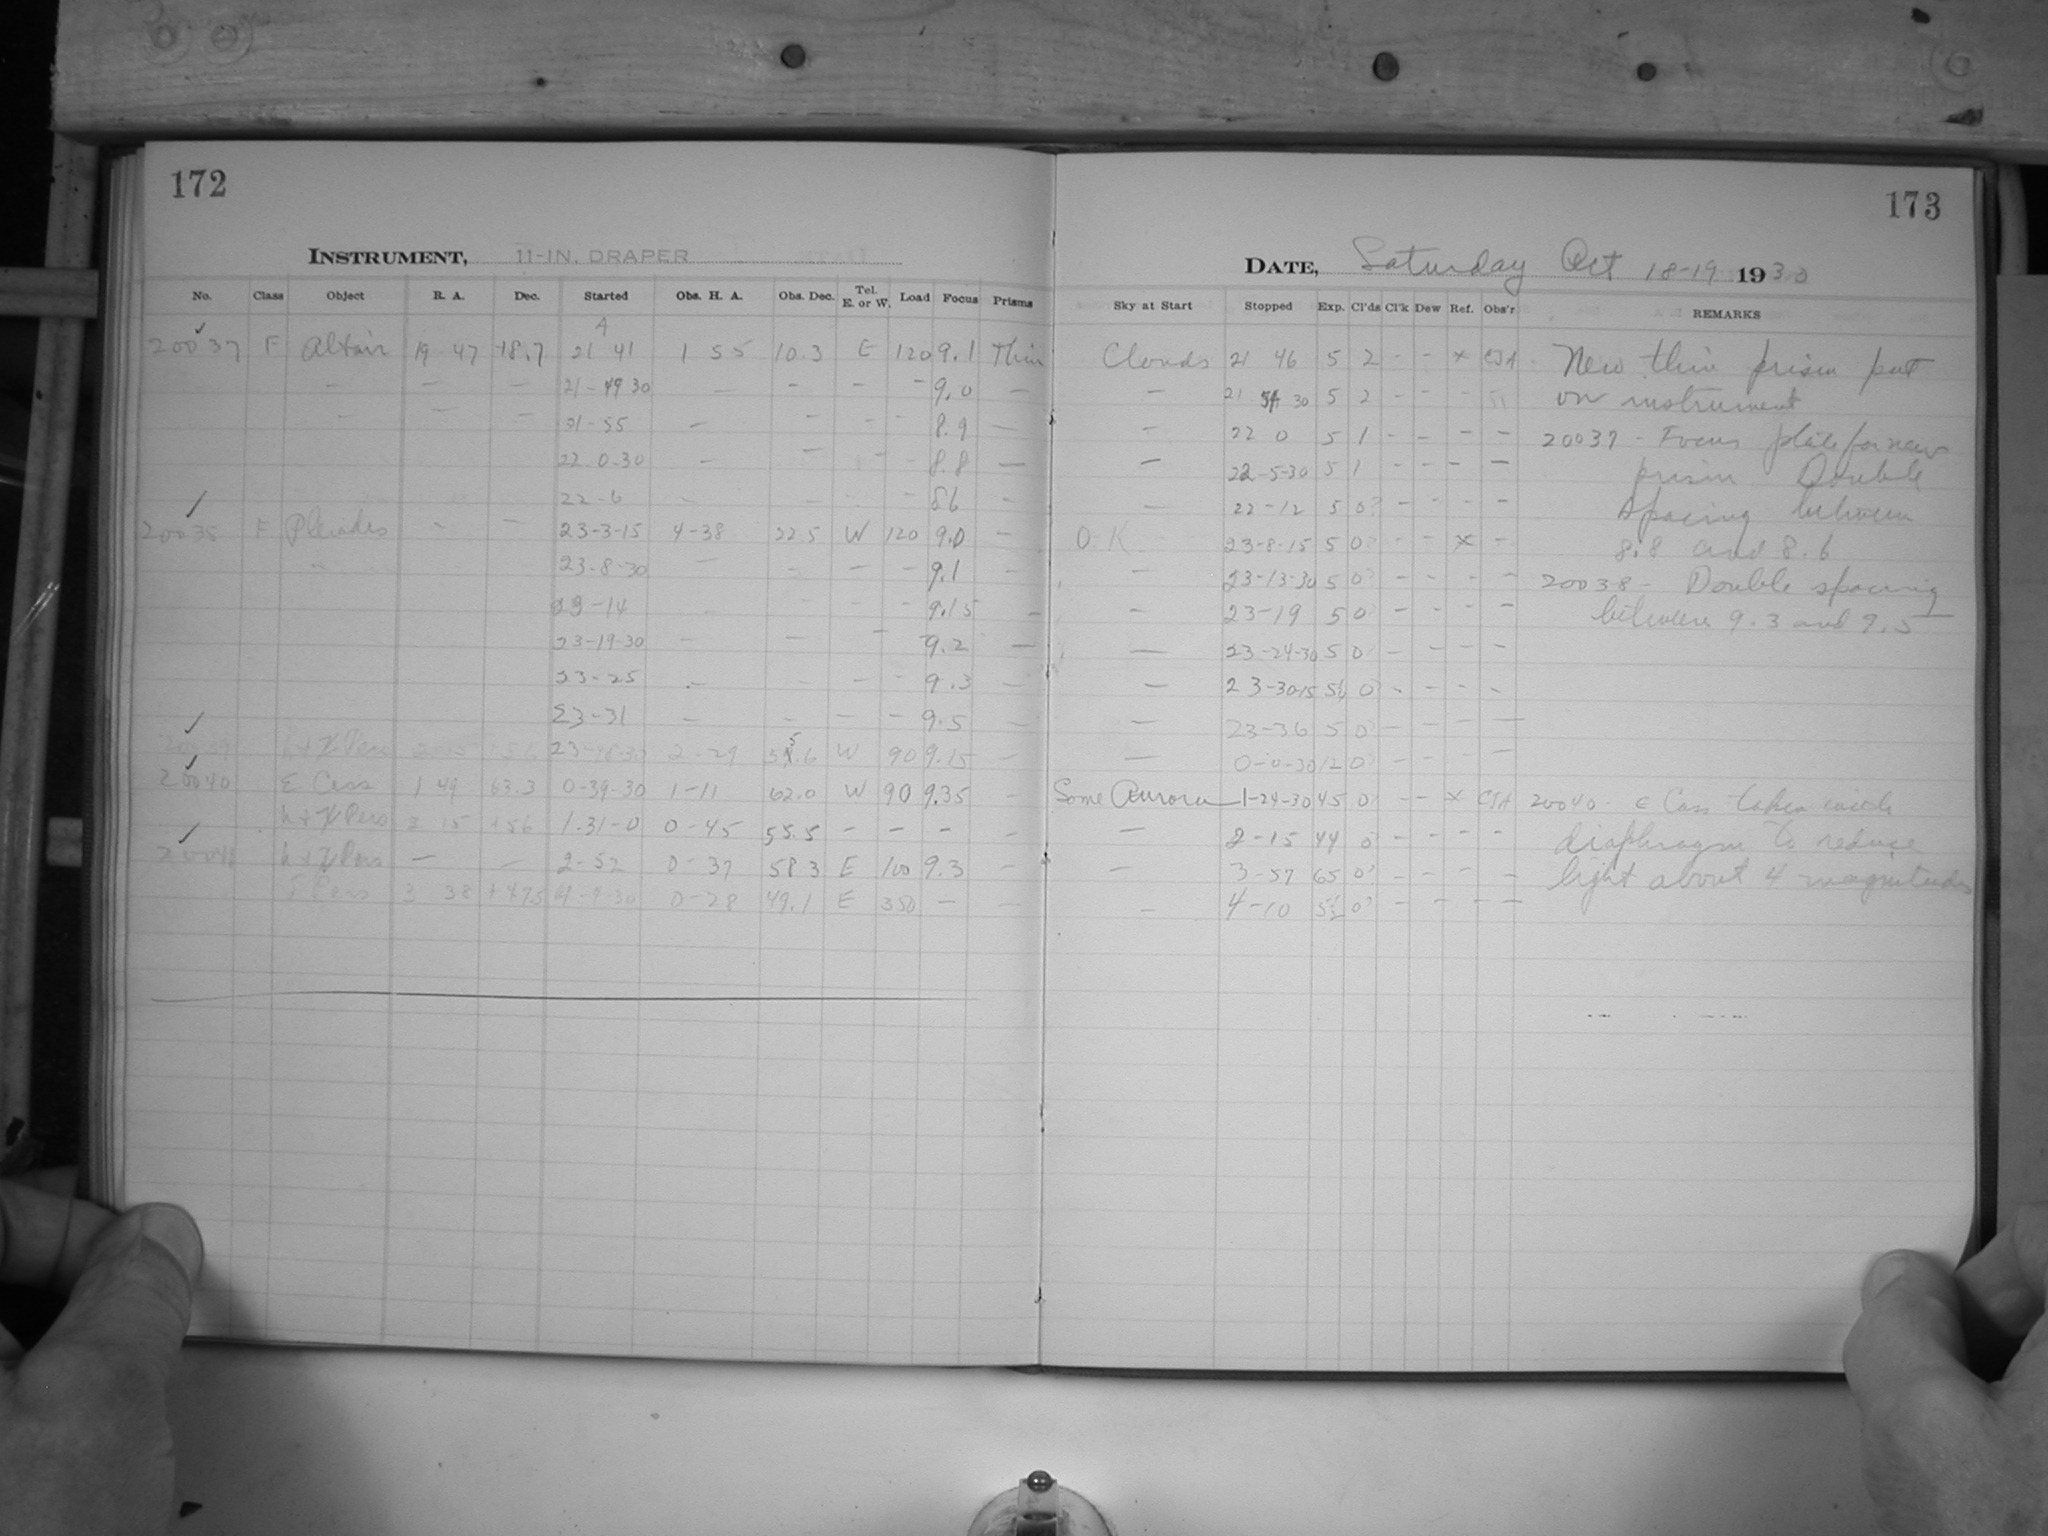 172
INSTRUMENT, 11-IN. DRAPER
No. Class Object R. A. Dec. Started Obs. H. A. Obs. Dec. Tel. E. or W. Load Focus Prisms
20037 F Altair 19 47 +8.7 21 41 1 55 10.3 E 120 9.1 Thin
— — — 21-49 30 — — — — 9.0 —
— — — 21-55 — — — — 8.9 —
22-0-30 — — — — 8.8 —
22-6 — — — — 8.6 —
20038 F Pleiades — — 23-3-15 4-38 22.5 W 120 9.0 —
— 23-8-30 — — — — 9.1 —
23-14 — — — — 9.15 —
23-19-30 — — — 9.2 —
23-25 — — — — 9.3 —
23-31 — — — — 9.5 —
h + χ Pers +56 2-29 W 90 9.15 —
20040 ε Cass 1 49 63.3 0-39-30 1-11 62.0 W 90 9.35 —
h + χ Pers 2 15 +56 1-31-0 0-45 55.5 — — — —
h + χ Pers — — 2-52 0-37 58.3 E 100 9.3 —
Pers 3 38 +47.5 4-9-30 0-28 49.1 E 350 — —
173
DATE, Saturday Oct 18-19 1930
Sky at Start Stopped Exp. Cl'ds Cl'k Dew Ref. Obs'r REMARKS
Clouds 21 46 5 2 - - x CJA New thin prism put
— 21 54 30 5 2 - - - on instrument
— 22 0 5 1 - - - - 20037 - Focus plate for new
— 22-5-30 5 1 - - - - prism Double
— 22-12 5 0? - - - - spacing between
O.K. 23-8-15 5 0? - - x - 8.8 and 8.6
— 23-13-30 5 0? - - - - 20038 - Double spacing
— 23-19 5 0? - - - - between 9.3 and 9.5
— 23-24-30 5 0? - - - -
— 23-30-15 0? - - - -
— 23-36 5 0? - - - -
— 0-0-30 12 0? - - - -
Some Aurora 1-24-30 45 0? - - x CJA 20040 - ε Cass taken with
— 2-15 44 0? diaphragm to reduce
— 3-57 65 0? - - - - light about 4 magnitudes
— 4-10 0? - - - -